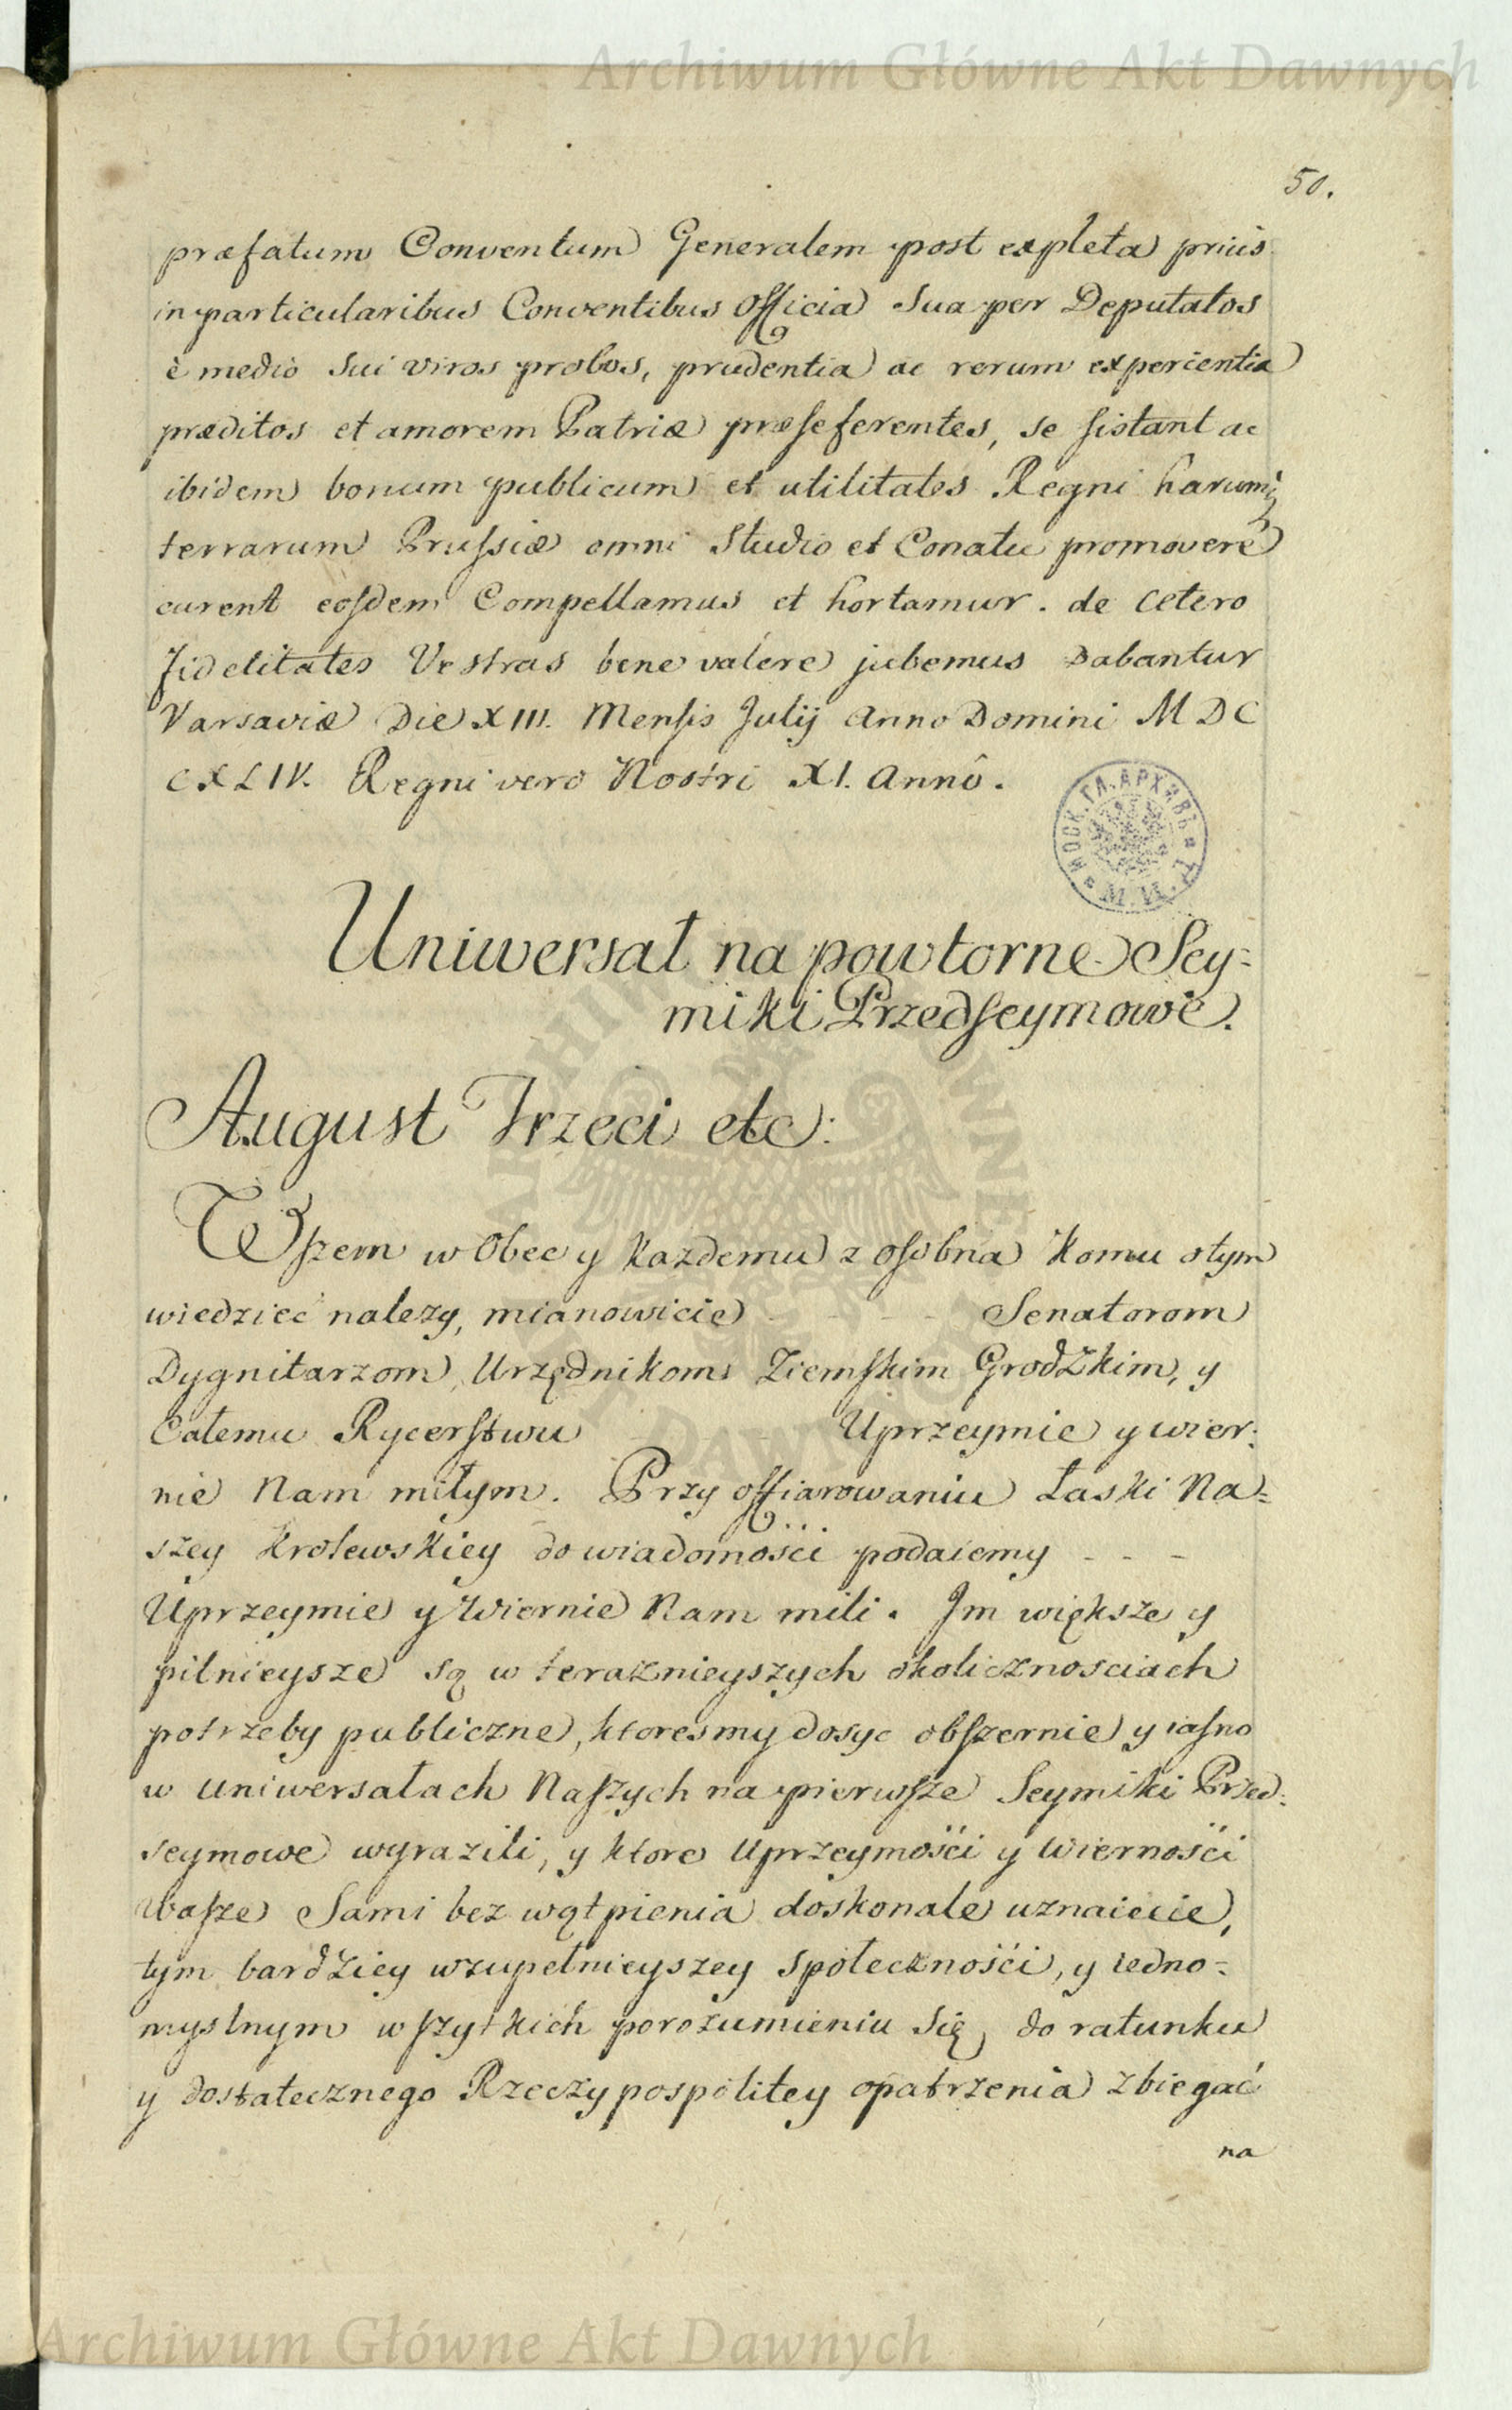 Archiwum Główne Akt Dawnych
50.
præfatum Conventum Generalem post expleta prius
in particularibus Conventibus officia Sua per Deputatos
è medio Sui viros probos, prudentia ac rerum experientia
præditos et amorem Patriæ præseferentes, se sistant ac
ibidem bonum publicum et utilitates Regni harumq;
terrarum Prussiæ omni Studio et Conatu promovere
curent eosdem Compellamus et hortamur. de cetero
fidelitates Vestras bene valere jubemus Dabantur
Varsaviæ Die XIII. Mensis Julij Anno Domini MDC
CXLIV. Regni vero Nostri XI. Annô.
МОСК. ГЛ. АРХИВЪ М. И. Д.
Uniwersał na powtorne Sey=
miki Przedseymowe.
August Trzeci etc:
Wszem w Obec y Kazdemu z osobna Komu o tym
wiedzieć nalezy, mianowicie - - - - Senatorom
Dygnitarzom, Urzędnikom Ziemskim Grodzkim, y
Całemu Rycerstwu Uprzeymie y wier=
nie Nam miłym. Przy offiarowaniu Łaski Na=
szey Krolewskiey do wiadomości podaiemy - - -
Uprzeymie y Wiernie Nam mili. Im większe y
pilnieysze są w teraznieyszych okolicznosciach
potrzeby publiczne, ktoresmy dosyc obszernie y iasno
w Uniwersałach Naszych na pierwsze Seymiki Przed=
seymowe wyrazili, y ktore Uprzeymości y Wierności
Wasze Sami bez wątpienia doskonale uznaiecie,
tym bardziey w zupełnieyszey społeczności, y iedno=
myslnym wszytkich porozumieniu się, do ratunku
y dostatecznego Rzeczypospolitey opatrzenia zbiegać
na
Archiwum Główne Akt Dawnych